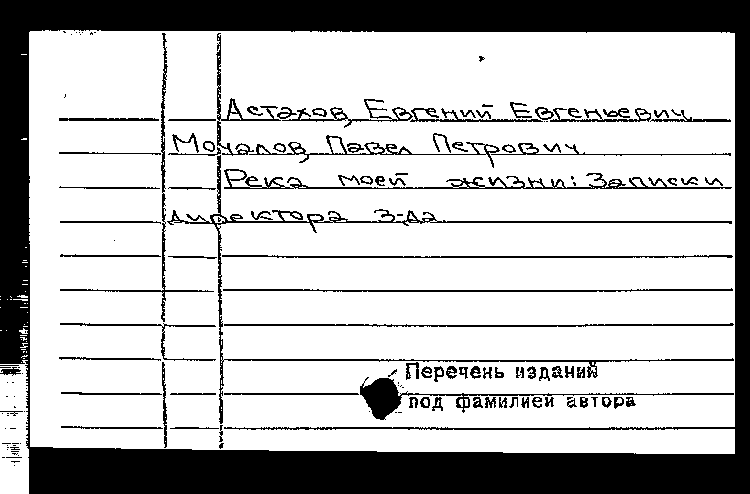 Астахов, Евгений Евгеньевич
Мочалов, Павел Петрович
Река моей жизни: Записки
директора з-да
Перечень изданий
под фамилией автора